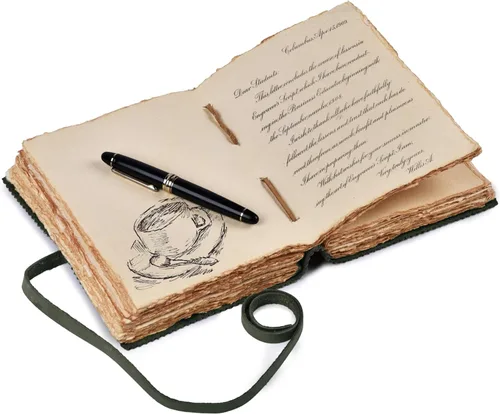 Columbus, Apr. 15, 1909.
Dear Students:
This letter concludes the course of lessons in
Engrosser's Script which I have been conduct-
ing in the Business Educator beginning with
the September number 1908.
I wish to thank all who have faithfully
followed the lessons and trust that each has de-
rived therefrom as much benefit and pleasure as
I have in preparing them.
With best wishes for your success in master-
ing the art of Engrosser's Script I am,
Very truly yours,
Willis A.